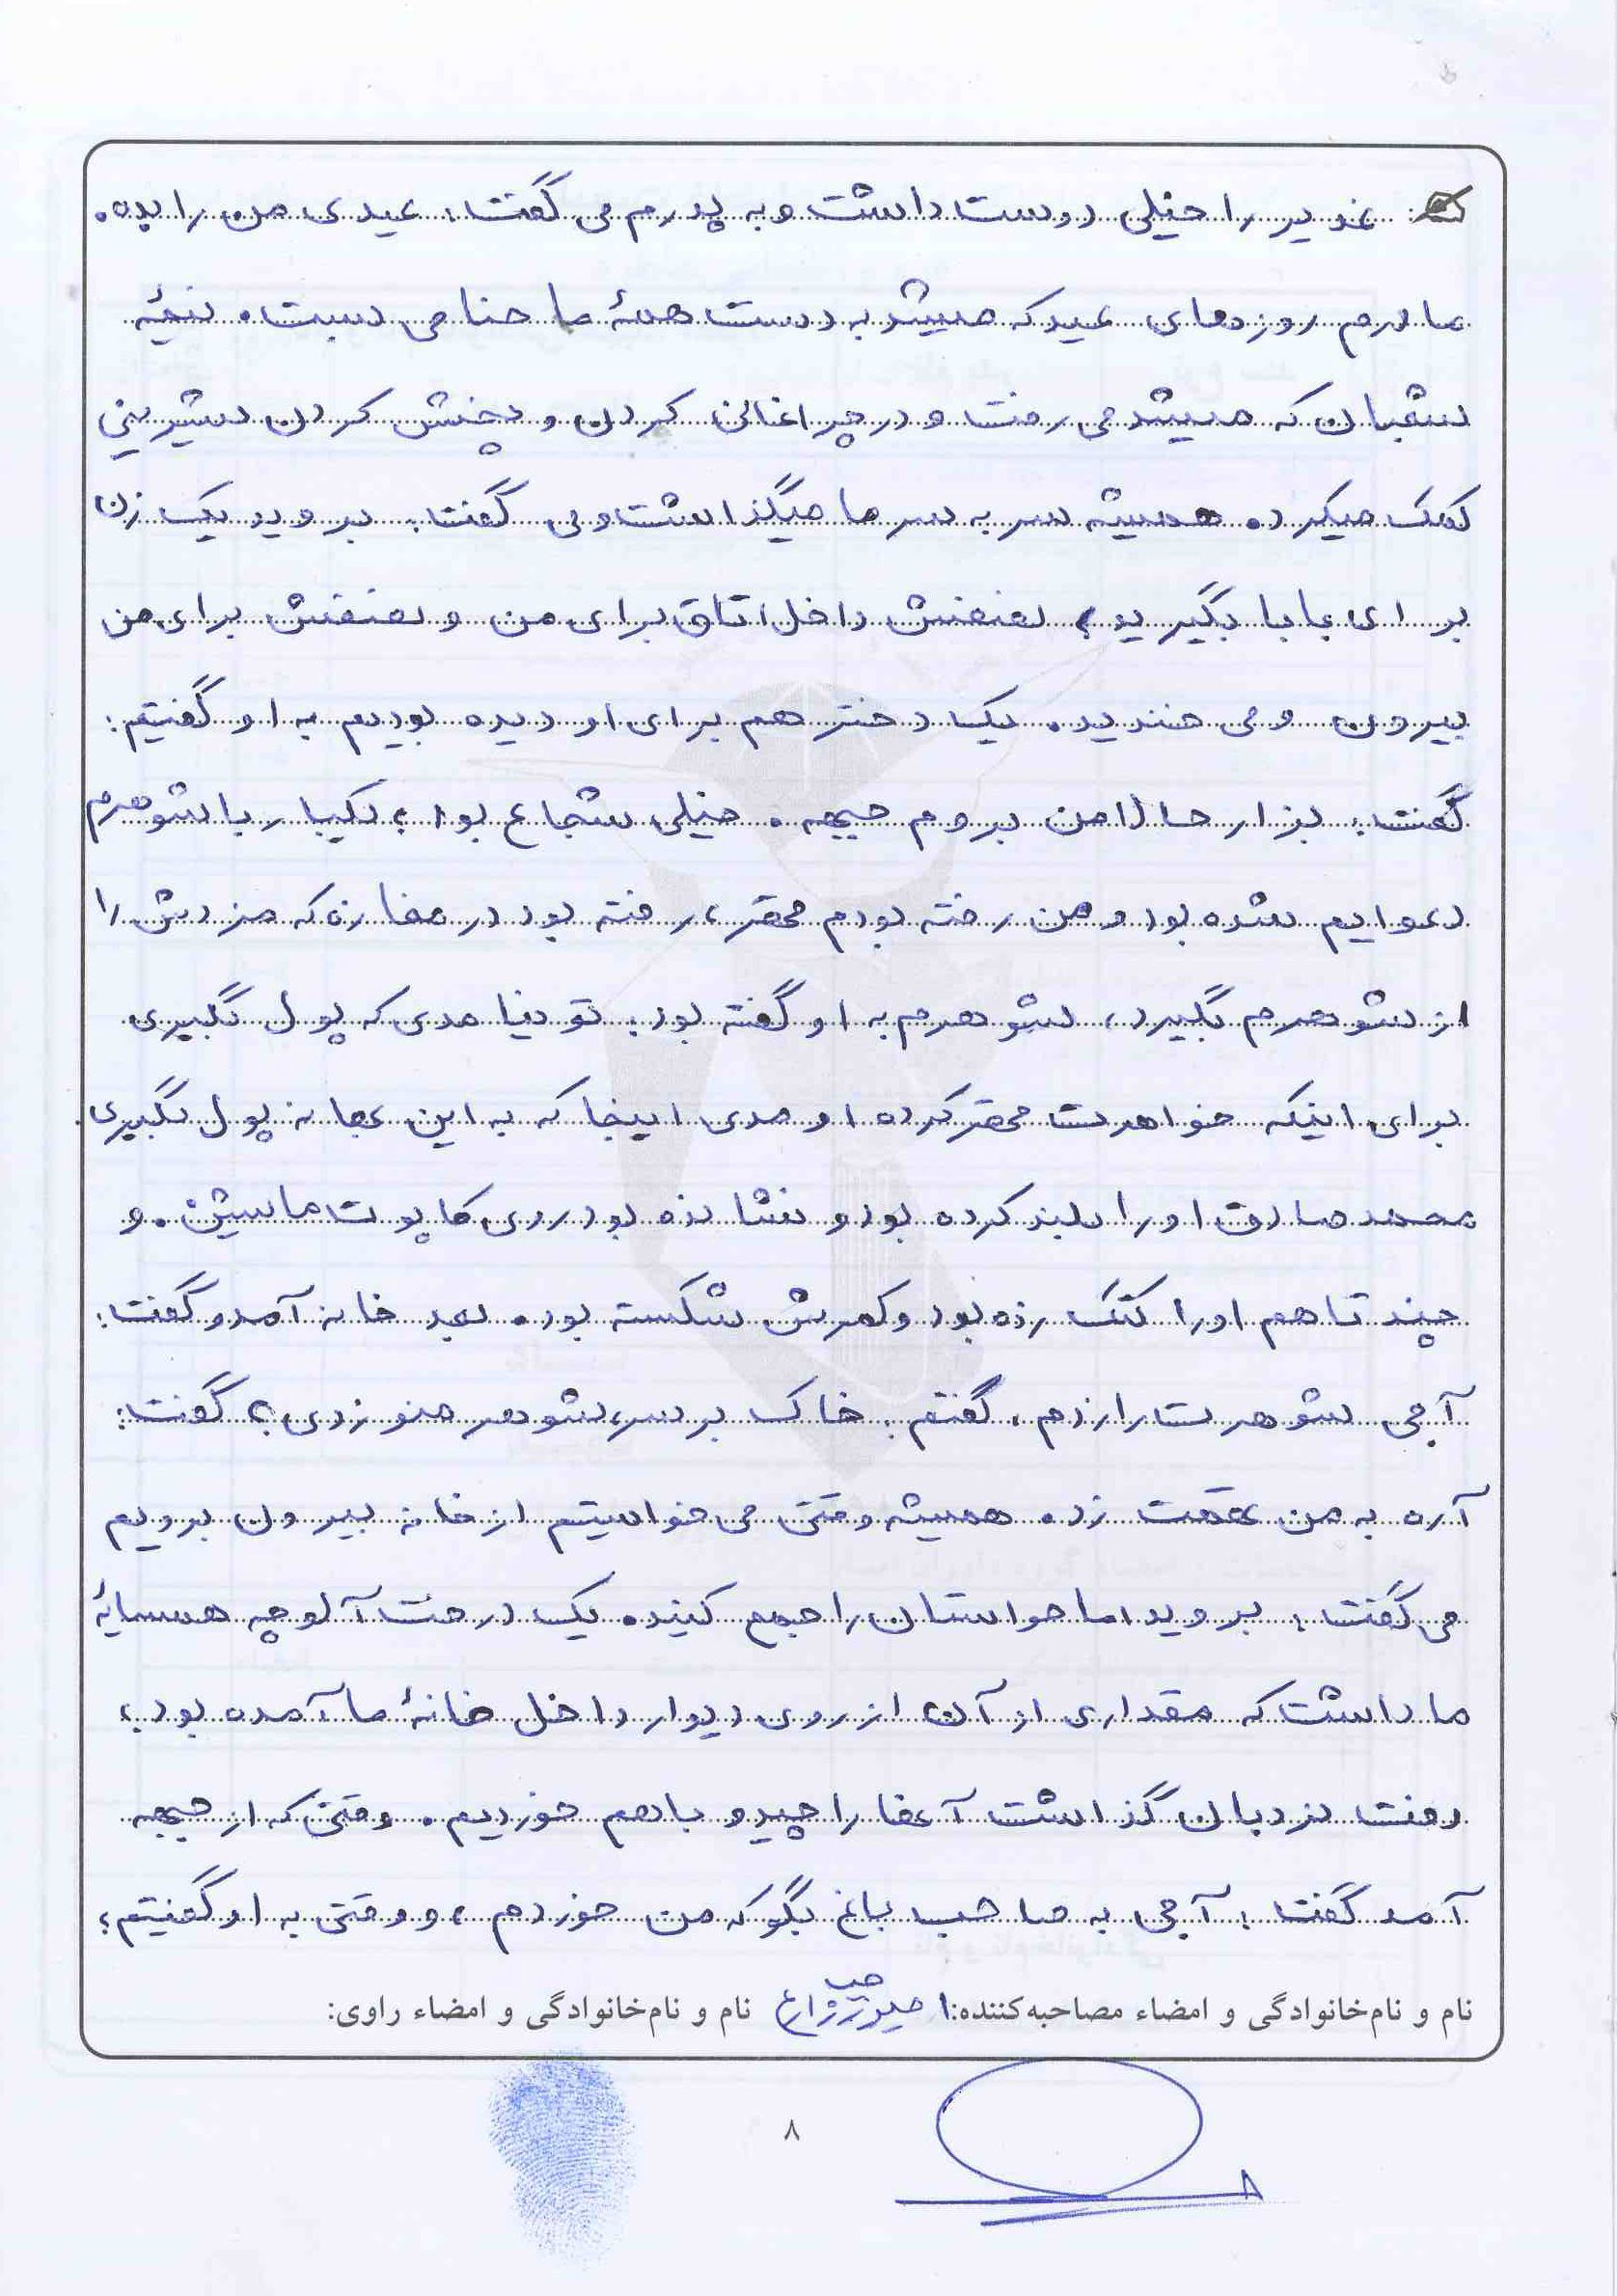 غدیر را خیلی دوست داشت و به پدرم می گفت: عیدی من را بده.
مادرم روزهای عید که میشد به دست همهٔ ما حنا می بست. نیمهٔ
شعبان که میشد می رفت و در چراغانی کردن و پخش کردن شیرینی
کمک میکرد. همیشه سر به سر ما میگذاشت و می گفت: بروید یک زن
برای بابا بگیرید؛ نصفش داخل اتاق برای من و نصفش برای من
بیرون و می خندید. یک دختر هم برای او دیده بودیم به او گفتیم:
گفت: بزار حالا من بروم جبهه. خیلی شجاع بود؛ یکبار با شوهرم
دعوایم شده بود و من رفته بودم محضر، رفته بود در مغازه که مزدش را
از شوهرم بگیرد، شوهرم به او گفته بود: تو نیامدی که پول بگیری
برای اینکه خواهرت محضر کرده اومدی اینجا که به این بهانه پول بگیری.
محمدصادق او را بلند کرده بود و نشانده بود روی کاپوت ماشین. و
چند تا هم او را کتک زده بود و کمرش شکسته بود. بعد خانه آمد و گفت:
آجی شوهرت را زدم، گفتم: خاک بر سر، شوهر منو زدی؟ گفت:
آره به من تهمت زد. همیشه وقتی می خواستیم از خانه بیرون برویم
می گفت: بروید اما حواستان را جمع کنید. یک درخت آلوچه همسایهٔ
ما داشت که مقداری از آن از روی دیوار داخل خانهٔ ما آمده بود،
رفت نردبان گذاشت آنها را چید و با هم خوردیم. وقتی که از جبهه
آمد گفت: آجی به صاحب باغ بگو که من خوردم، و وقتی به او گفتیم؛
نام و نام‌خانوادگی و امضاء مصاحبه‌کننده: نام و نام‌خانوادگی و امضاء راوی:
۸